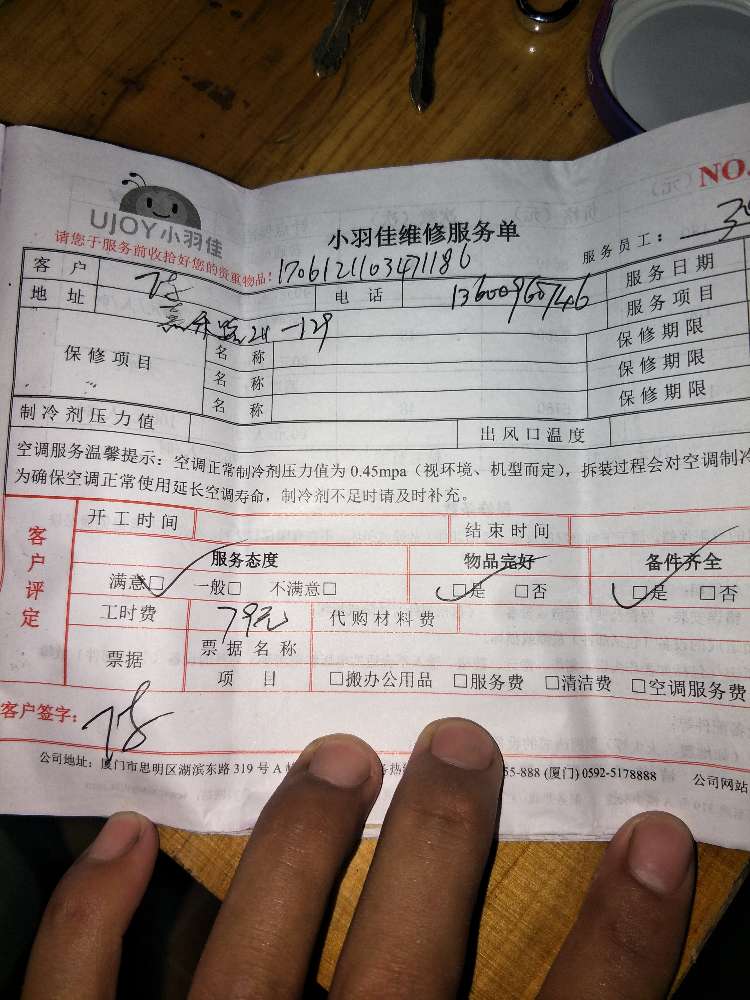 NO.
UJOY小羽佳
小羽佳维修服务单
请您于服务前收拾好您的贵重物品!
1706121103471186
服务员工:
客户
电话 13600960746
服务日期
地址
-129
服务项目
保修项目
名称
保修期限
名称
保修期限
名称
保修期限
制冷剂压力值
出风口温度
空调服务温馨提示:空调正常制冷剂压力值为 0.45mpa(视环境、机型而定),拆装过程会对空调制冷
为确保空调正常使用延长空调寿命,制冷剂不足时请及时补充。
客户评定
开工时间
结束时间
服务态度
物品完好
备件齐全
满意□ 一般□ 不满意□
□是 □否
□是 □否
工时费 79元 代购材料费
票据
票据名称
项目 □搬办公用品 □服务费 □清洁费 □空调服务费
客户签字:
公司地址:厦门市思明区湖滨东路 319 号 A
55-888 (厦门) 0592-5178888
公司网站